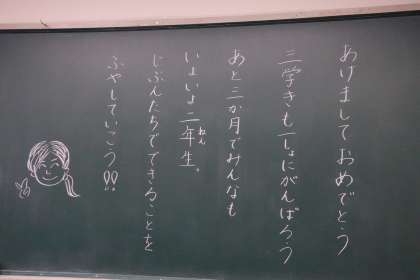 あけまして おめでとう
三学きも一しょにがんばろう
あと三か月でみんなも
いよいよ二年生。
ねん
じぶんたちでできることを
ふやしていこう!!